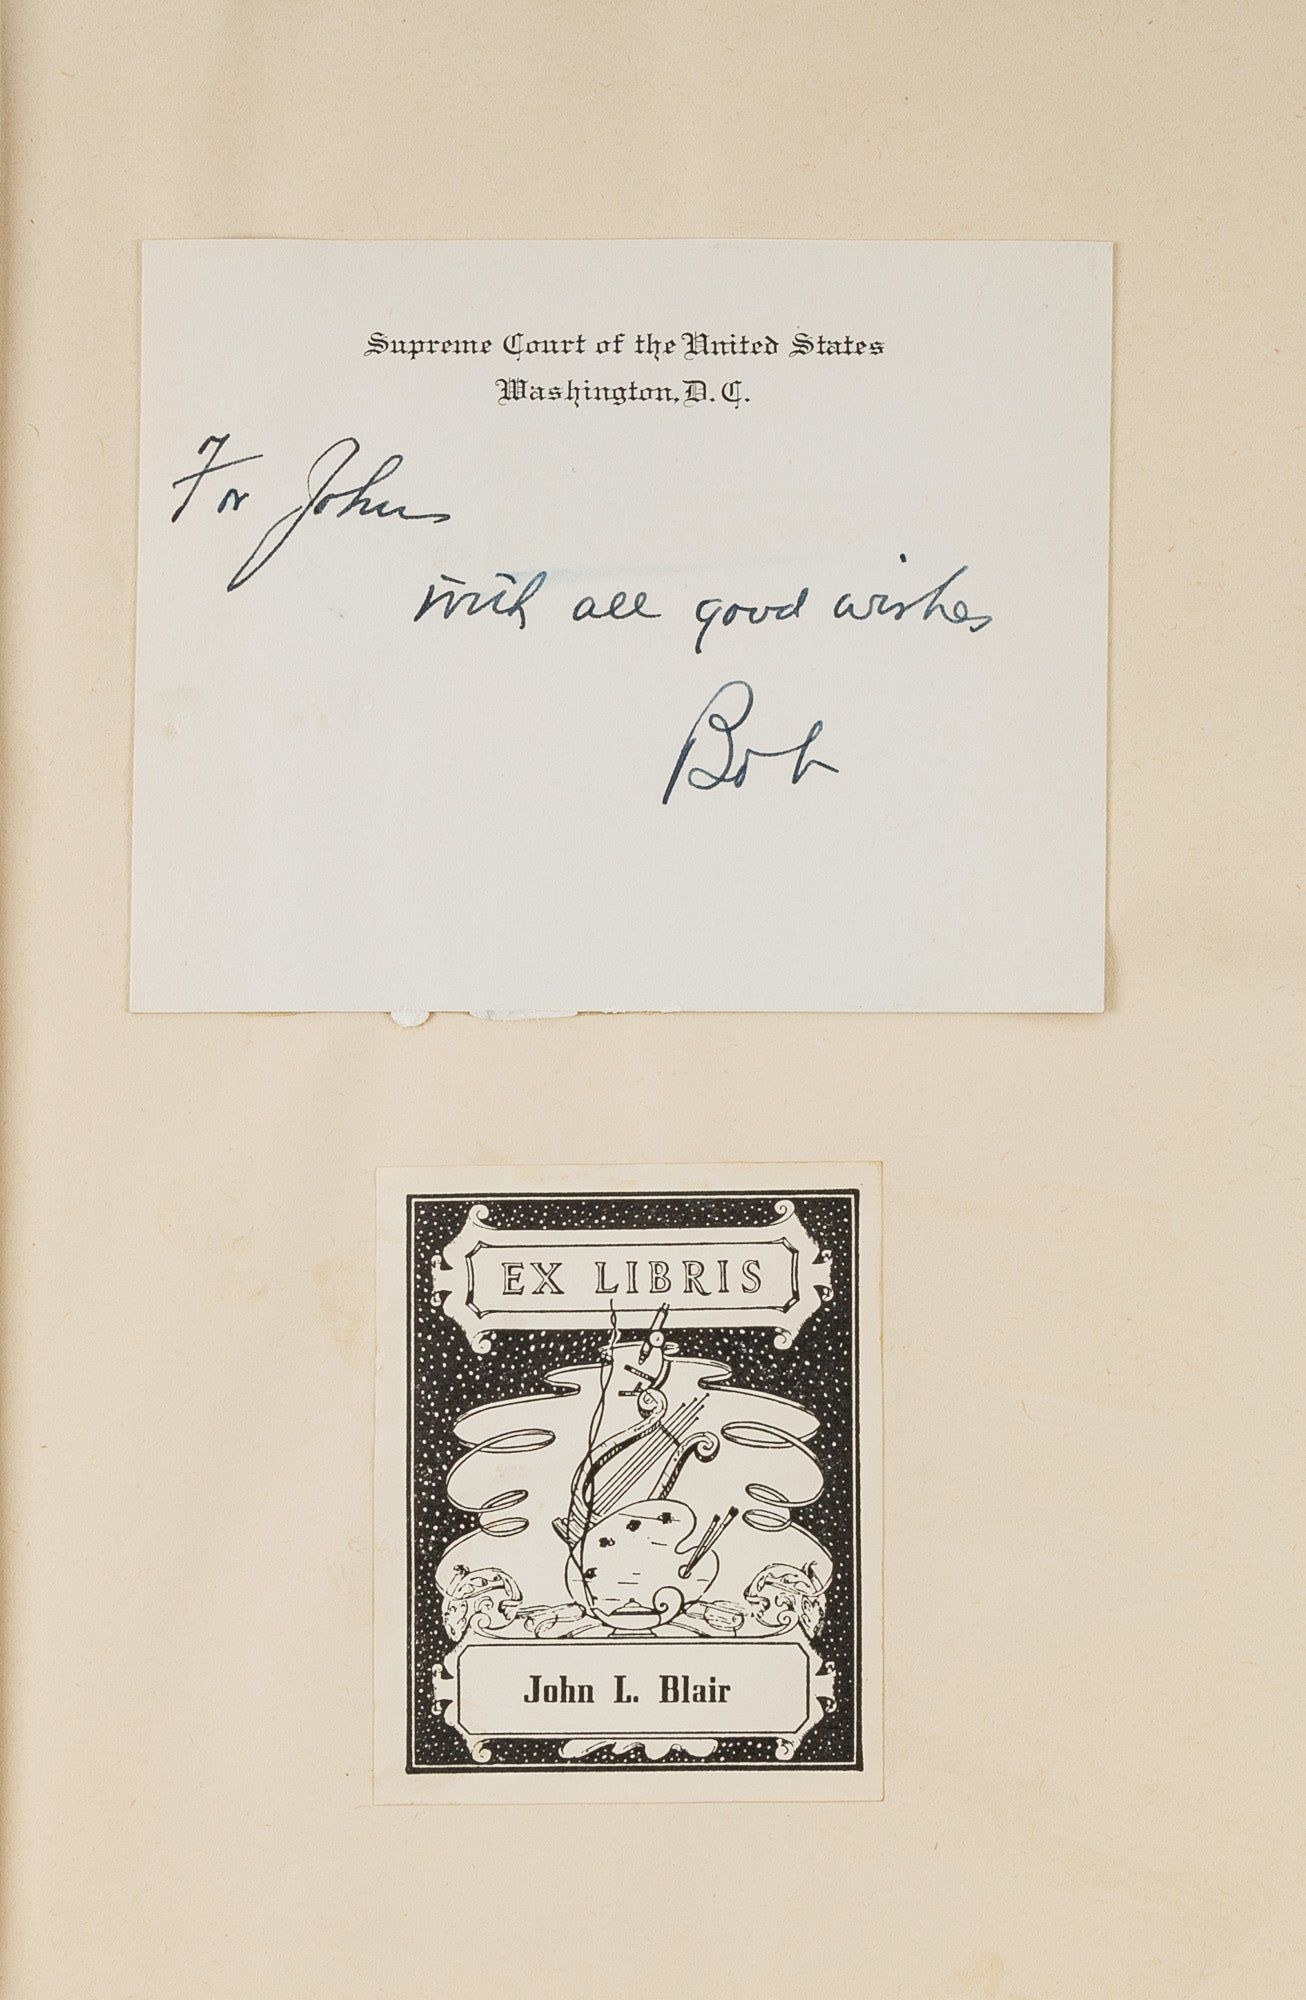 Supreme Court of the United States
Washington, D. C.
For John
with all good wishes
Bob
EX LIBRIS
John L. Blair